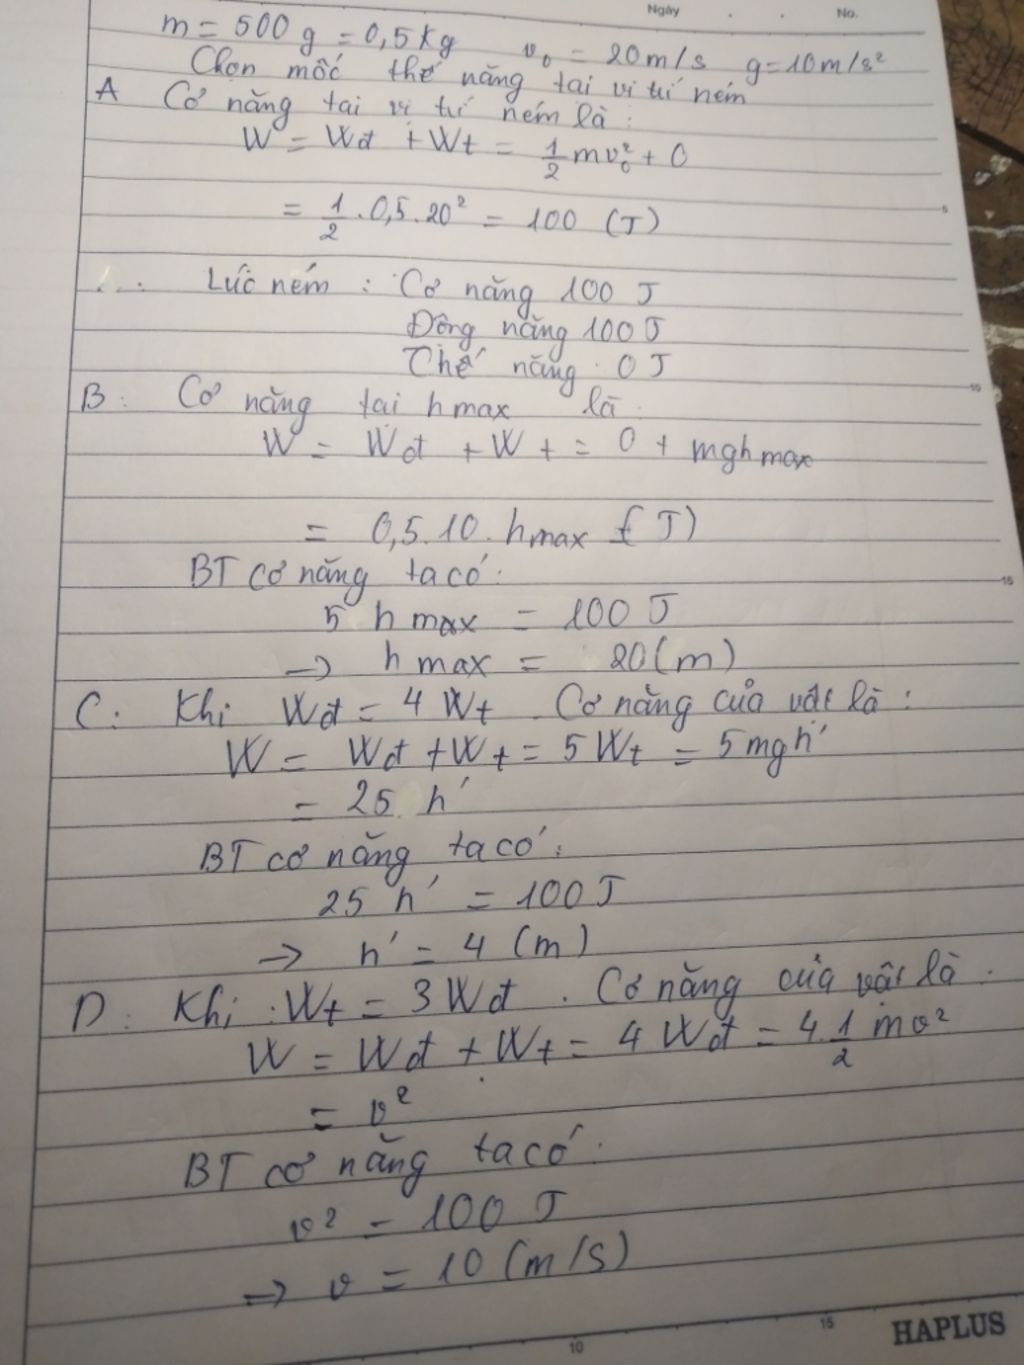 Ngày . . No.
m = 500 g = 0,5 kg v₀ = 20 m/s g = 10 m/s²
Chọn mốc thế năng tại vị trí ném
A Cơ năng tại vị trí ném là :
W = Wđ + Wt = 1/2 mv₀² + 0
= 1/2 . 0,5 . 20² = 100 (J)
Lúc ném : Cơ năng 100 J
Động năng 100 J
Thế năng 0 J
B : Cơ năng tại hmax là :
W = Wđ + Wt = 0 + mghmax
= 0,5.10. hmax (J)
BT cơ năng ta có :
5 hmax = 100 J
→ hmax = 20 (m)
C : Khi Wđ = 4 Wt . Cơ năng của vật là :
W = Wđ + Wt = 5 Wt = 5mgh'
= 25 h'
BT cơ năng ta có :
25 h' = 100 J
→ h' = 4 (m)
D : Khi Wt = 3 Wđ . Cơ năng của vật là :
W = Wđ + Wt = 4 Wđ = 4. 1/2 mv²
= v²
BT cơ năng ta có :
v² = 100 J
→ v = 10 (m/s)
5
10
15
10 15 HAPLUS